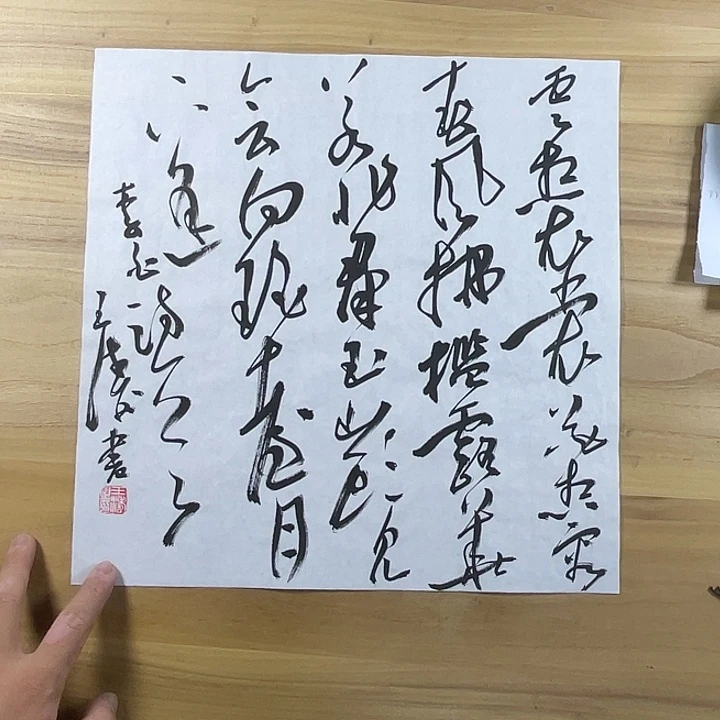 雲想衣裳花想容
春風拂檻露華
若非群玉山头見
会向瑶臺月
下逢
李白
王 書